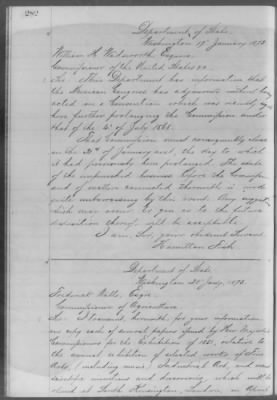 282
Department of State,
Washington 19th January 1873.
William H. Wadsworth, Esquire,
Commissioner of the United States &c.
Sir: This Department has information that
the Mexican Congress has adjourned without having
acted on a Convention which was merely
further prolonging the Commission under
that of the 4th of July 1868.
That Commission must consequently close
on the 31st of January next, the day to which
it had previously been prolonged. The state
of the unfinished business before the Commission
and of matters connected therewith is made
quite embarrassing by this event. Any suggestions
which may occur to you as to the future
disposition thereof, will be acceptable.
I am Sir, your obedient Servant
Hamilton Fish
Department of State,
Washington, Jany. 1873.
Watts, Esqre.
Commissioner of Agriculture
Sir: I transmit, herewith, for your information
one copy each of several papers issued by Her Majesty's
Commissioners for the Exhibition of 1851, relative to
the annual exhibition of selected works of Fine
Arts, (including music) Industrial Art, and new
Scientific inventions and discoveries which will be
at South Kensington, London, in